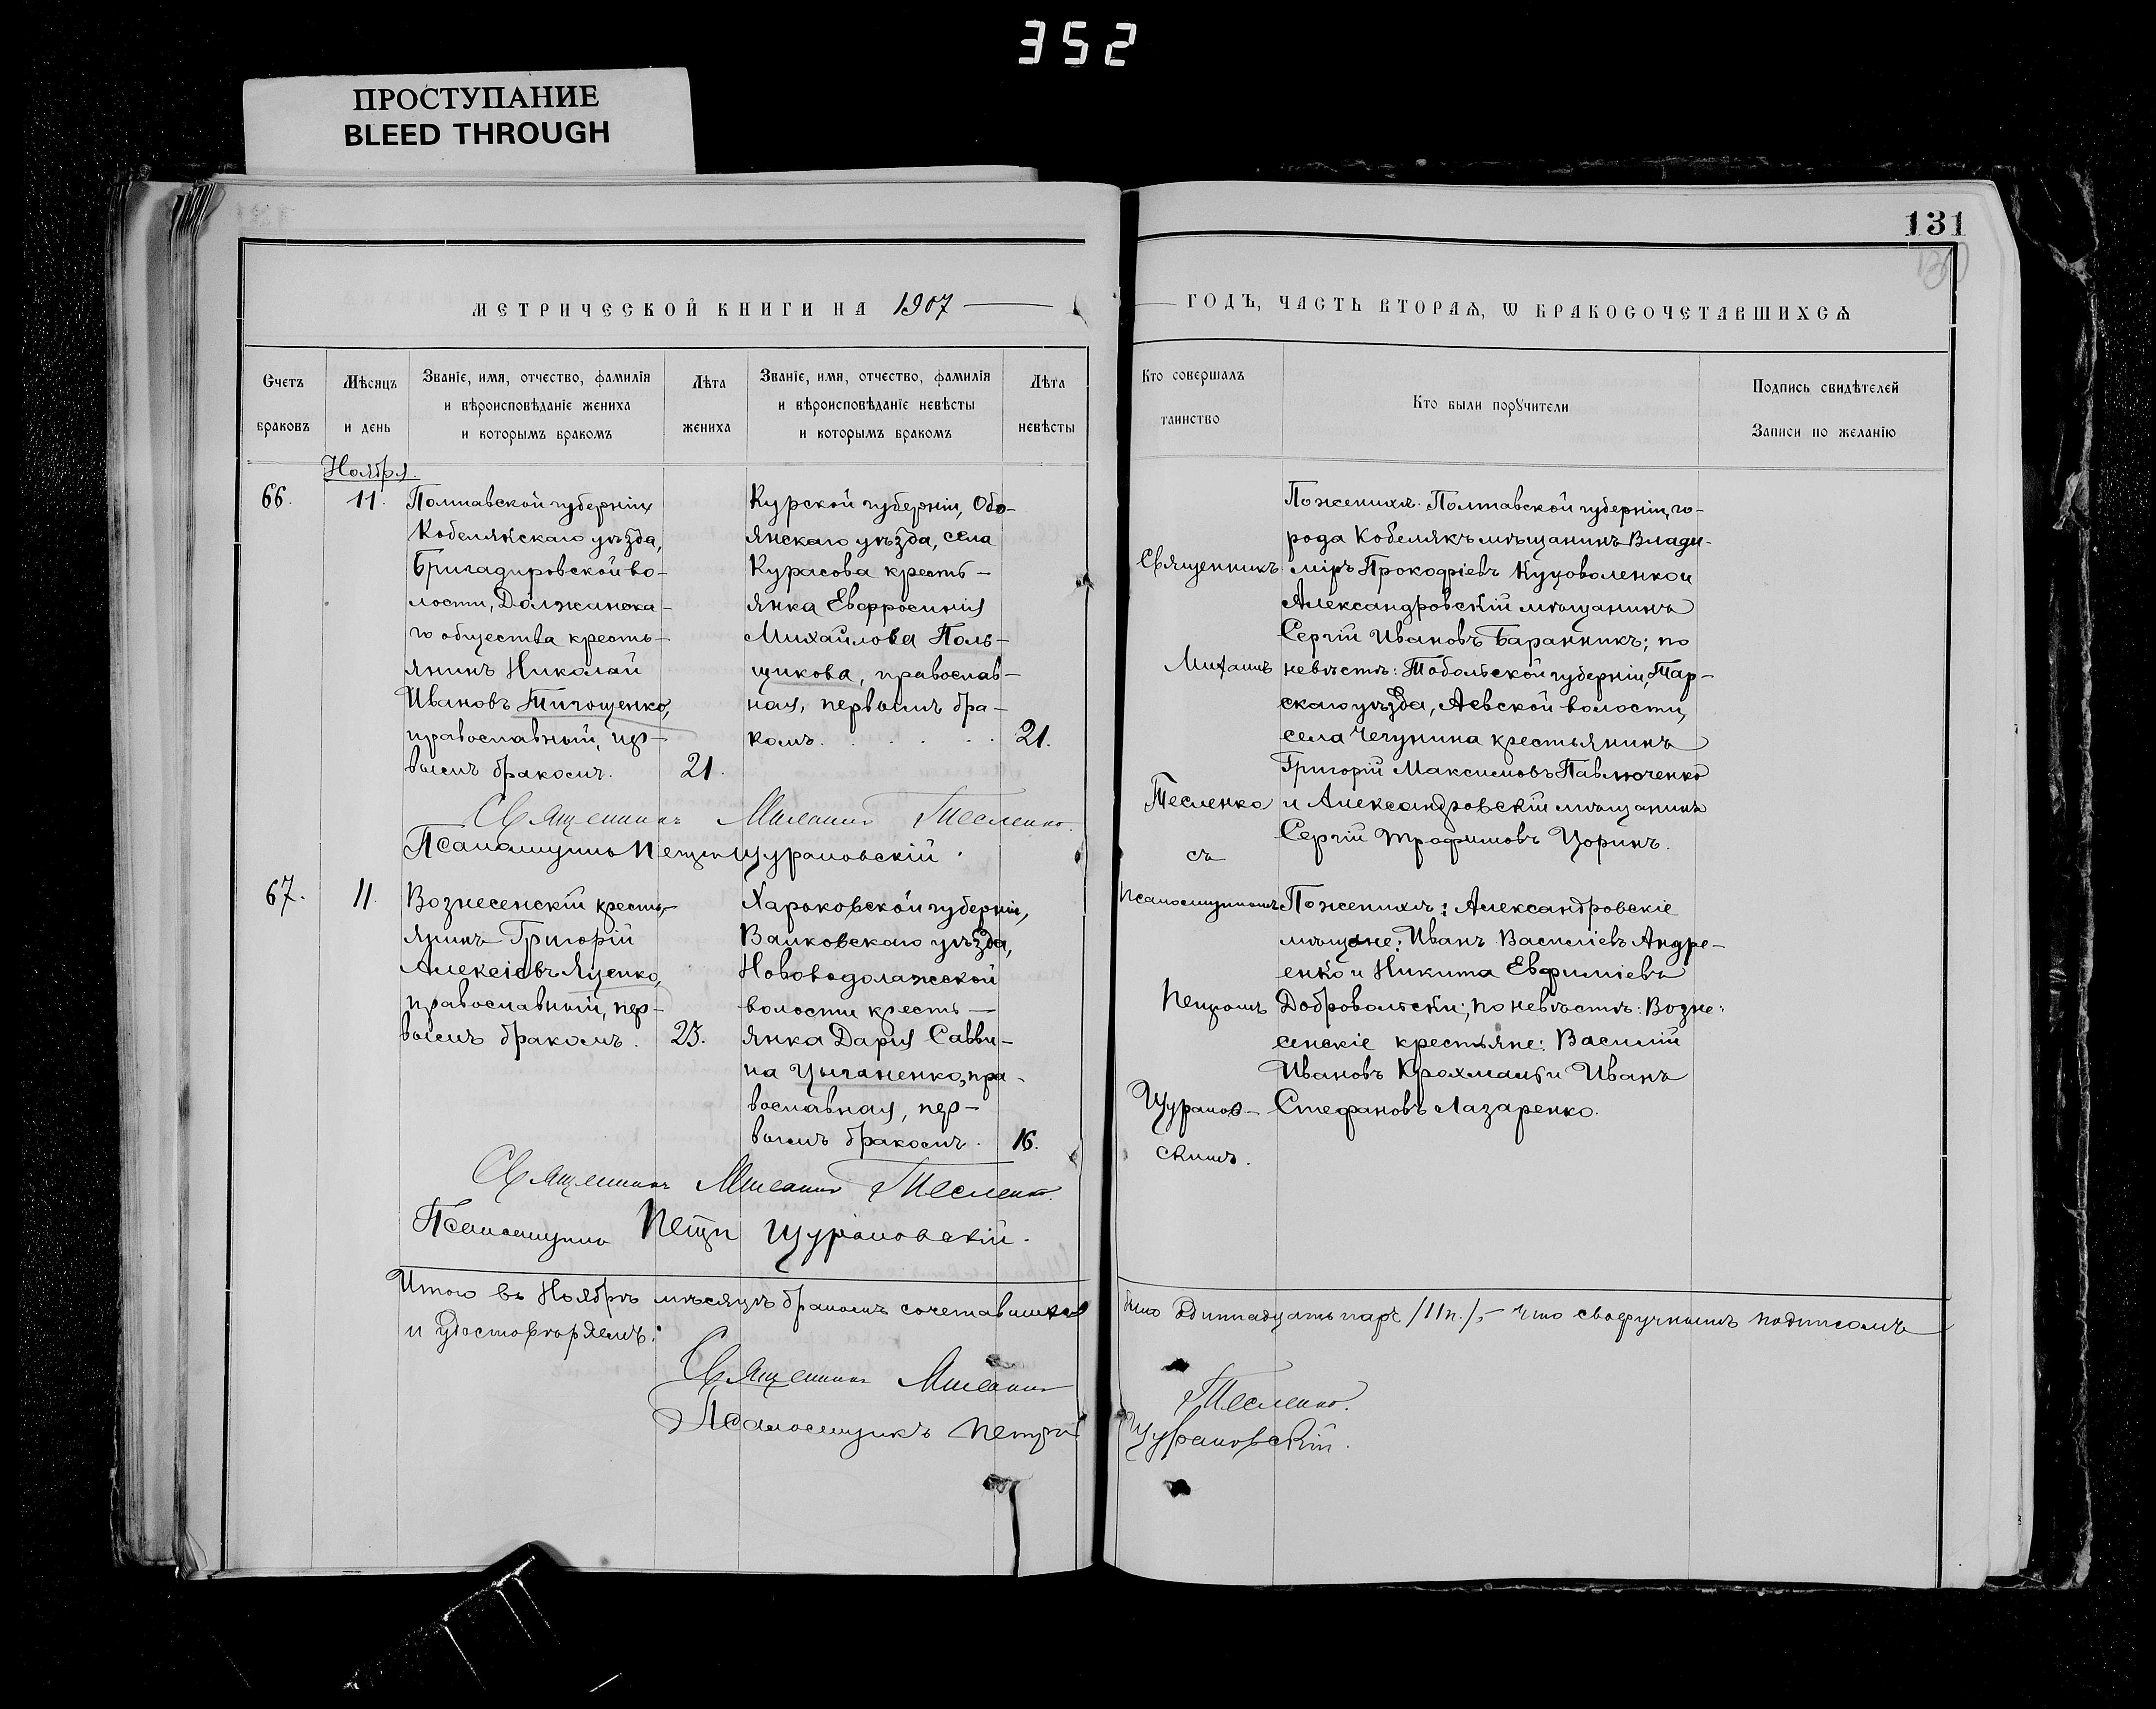 352
ПРОСТУПАНИЕ
BLEED THROUGH
131
МЕТРИЧЕСКОЙ КНИГИ НА 1907
ГОДЪ, ЧАСТЬ ВТОРАѦ, Ѡ БРАКОСОЧЕТАВШИХСѦ
Счетъ
браковъ
Мѣсяцъ
и день
Званіе, имя, отчество, фамилія
и вѣроисповѣданіе жениха
и которымъ бракомъ
Лѣта
жениха
Званіе, имя, отчество, фамилія
и вѣроисповѣданіе невѣсты
и которымъ бракомъ
Лѣта
невѣсты
Кто совершалъ
таинство
Кто были порꙋчители
Подпись свидѣтелей
Записи по желанію
Ноября
66.
11.
Полтавской губерніи
Кобелякскаго уѣзда,
Бригадировской во-
лости, Должанска-
го общества кресть-
янинъ Николай
Ивановъ
православный, пер-
вымъ бракомъ.
21.
Курской губерніи, Обо-
янскаго уѣзда, села
Курасова кресть-
янка Евфросинія
Михайлова Поль-
щикова, православ-
ная, первымъ бра-
комъ.
21.
Священникъ
Михаилъ
Тесленко
съ
Псаломщикомъ
Петромъ
Щуранов-
скимъ.
По женихѣ: Полтавской губерніи, го-
рода Кобелякъ мѣщанинъ Влади-
міръ Прокофіевъ Куцоваленко и
Александровскій мѣщанинъ
Сергій Ивановъ Баранникъ; по
невѣстѣ: Тобольской губерніи, Тар-
скаго уѣзда, Аевской волости,
села Чегунина крестьянинъ
Григорій Максимовъ Павлюченко
и Александровскій мѣщанинъ
Сергій Трофимовъ Цоринъ.
Священникъ Михаилъ Тесленко.
Псаломщикъ Петръ Щурановскій.
67.
11.
Вознесенскій кресть-
янинъ Григорій
Алексіевъ Яценко,
православный, пер-
вымъ бракомъ.
25.
Харьковской губерніи,
Валковскаго уѣзда,
Нововодолажской
волости кресть-
янка Дарія Савви-
на Цыганенко, пра-
вославная, пер-
вымъ бракомъ.
16.
По женихѣ: Александровскіе
мѣщане: Иванъ Василіевъ Андре-
енко и Никита Евфиміевъ
Добровольскій; по невѣстѣ: Возне-
сенскіе крестьяне: Василій
Ивановъ Крохмаль и Иванъ
Стефановъ Лазаренко.
Священникъ Михаилъ Тесленко.
Псаломщикъ Петръ Щурановскій.
Итого въ Ноябрѣ мѣсяцѣ бракомъ сочетавшихся было одиннадцать паръ /11 п./, - что своеручнымъ подписомъ
и удостовѣряемъ:
Священникъ Михаилъ Тесленко.
Псаломщикъ Петръ Щурановскій.